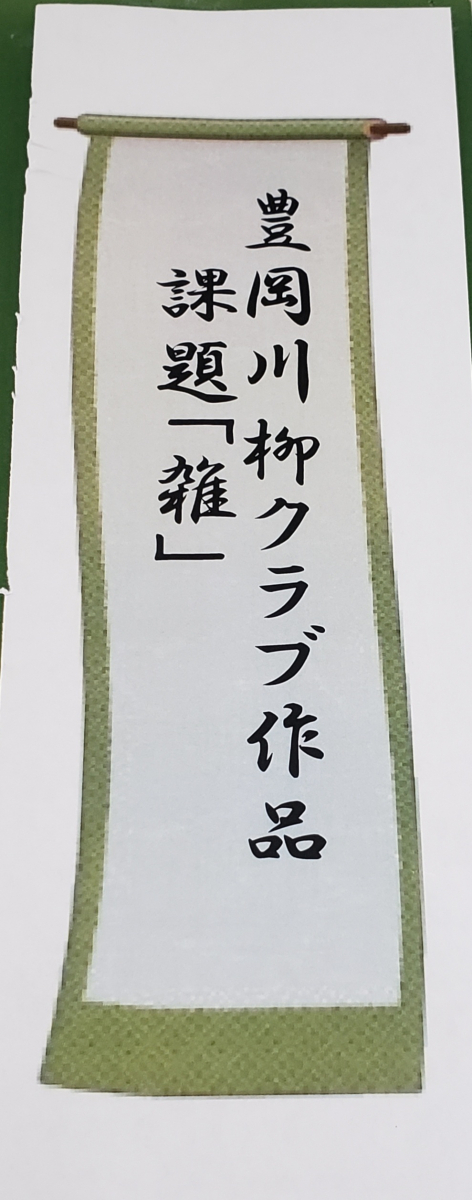 豊岡川柳クラブ作品
課題「雑」